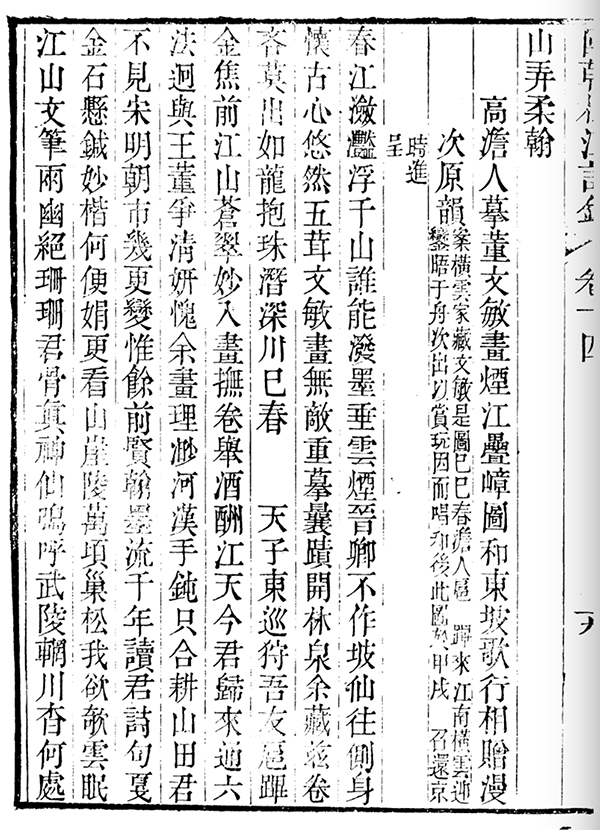 卷十四
山弄柔翰
高澹人摹董文敏畫煙江疊嶂圖和東坡歌行相贈漫
次原韻
案橫雲家藏文敏是圖己巳春澹人扈　蹕來江南橫雲迎
鑾晤于舟次出以賞玩因而唱和後此圖於甲戌　召還京
時進
呈
春江瀲灩浮千山誰能潑墨垂雲煙晉卿不作坡仙往側身
懷古心悠然五茸文敏畫無敵重摹曩蹟開林泉余藏茲卷
吝莫出如龍抱珠潛深川巳春　天子東巡狩吾友扈蹕
金焦前江山蒼翠妙入畫撫卷舉酒酬江天今君歸來通六
法迥與王董爭清妍愧余畫理渺河漢手鈍只合耕山田君
不見宋明朝市幾更變惟餘前賢翰墨流千年讀君詩句戛
金石懸鍼妙楷何便娟更看山崖陵萬項巢松我欲欹雲眠
江山文筆兩幽絕珊珊君骨真神仙嗚呼武陵輞川杳何處